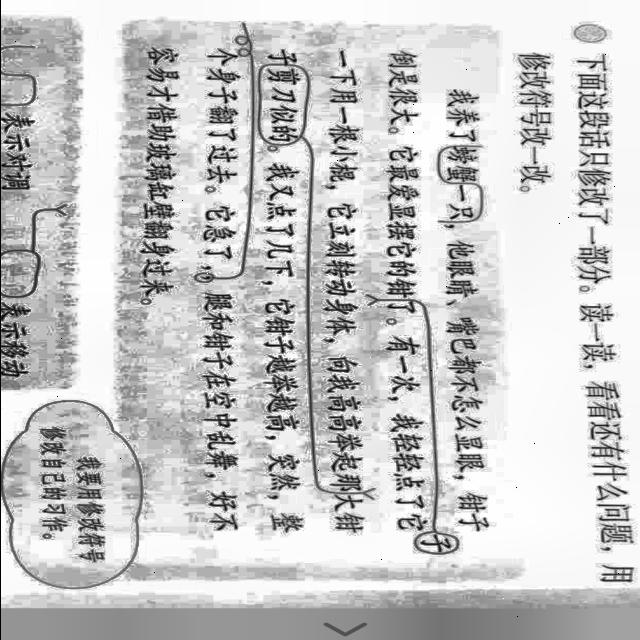 下面这段话只修改了一部分。读一读，看看还有什么问题，用
修改符号改一改。
我养了螃蟹一只，他眼睛、嘴巴都不怎么显眼，钳子
倒是很大。它最爱显摆它的钳了。有一次，我轻轻点了它
子
一下用一根小棍，它立刻转动身体，向我高高举起那大钳
子剪刀似的。我又点了几下，它钳子越举越高，突然，整
个身子翻了过去。它急了，腿和钳子在空中乱舞，好不
容易才借助玻璃缸壁翻身过来。
表示对调
表示移动
我要用修改符号
修改自己的习作。